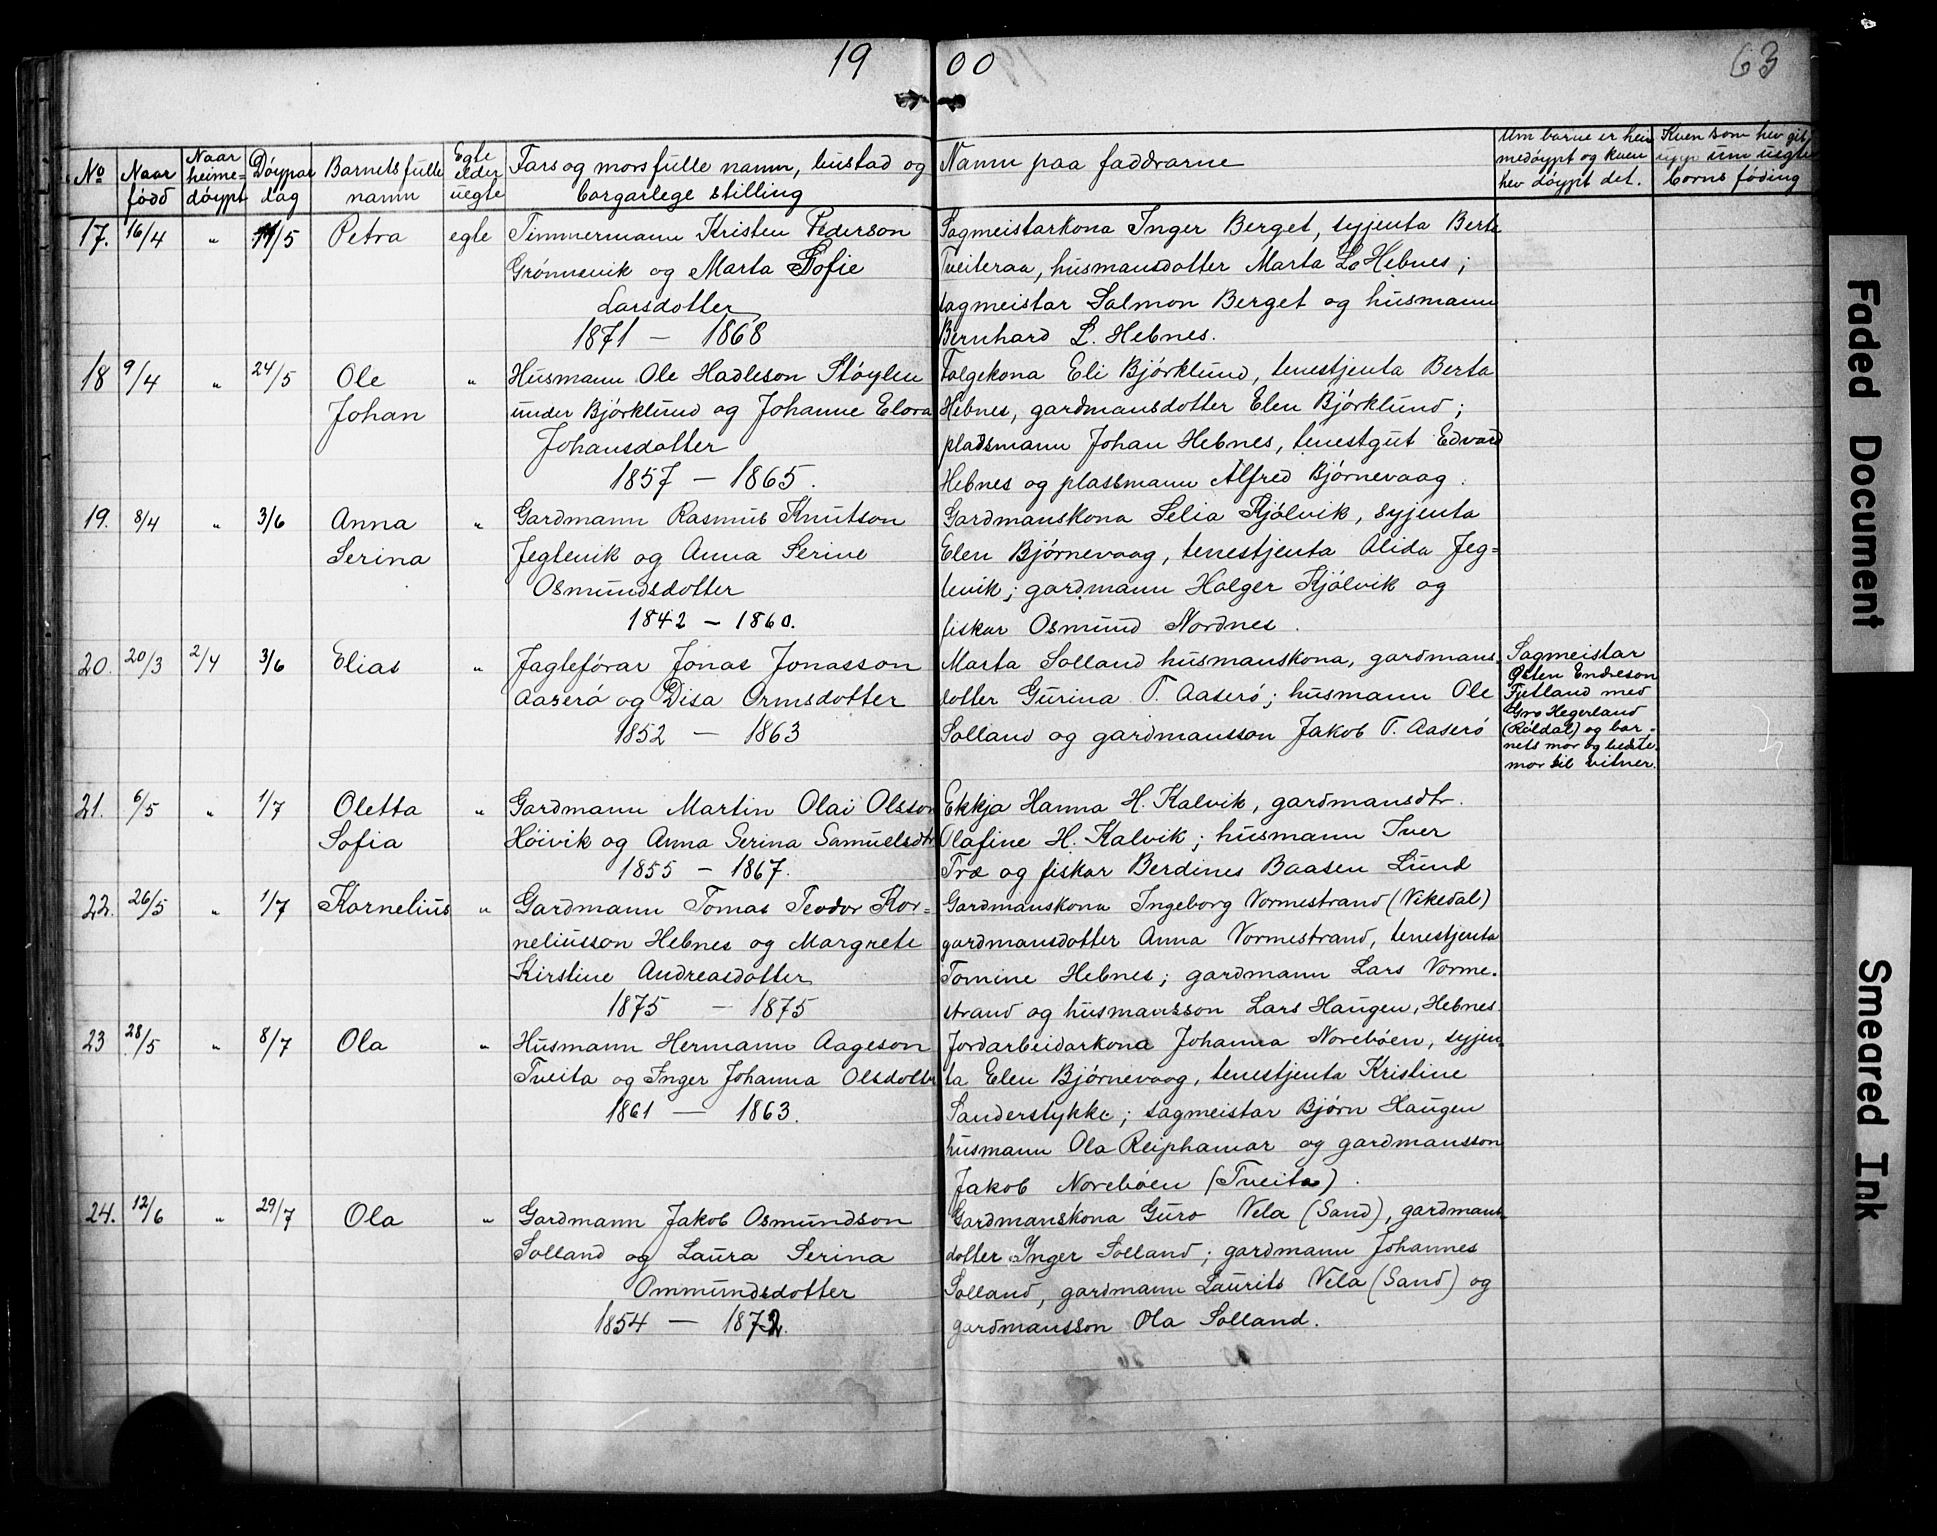 19 00
63
No
Naar fódd
Naar heime=dóypt
Dóypar dag
Barnets fulle namn
Egte elder uegte
Fars og mors fulle namn, bustad og borgarlege stilling
Namn paa faddrarne
Um barne er heimedóypt og kven hev dóypt det.
Kven som hev git upp um uegte borns fóding
17. 16/4 " 5 Petra egte
Timmermann Kristen Pederson
Grónnsvik og Marta Sofie
Larsdotter
1871 — 1868
Sagmeistarkona Inger Berget, syjenta Berta
Tveiteraa, husmansdotter Marta L. Hebnes;
sagmeistar Salmon Berget og husmann
Bernhard L. Hebnes.
18 9/4 " 24/5 Ole Johan "
Husmann Ole Hadleson Stóylen
under Bjórklund og Johanne Elora
Johansdotter
1857 — 1865.
Folgekona Eli Bjórklund, tenestjenta Berta
Hebnes, gardmansdotter Elen Bjórklund;
pladsmann Johan Hebnes, tenestgut Edvard
Hebnes og plassmann Alfred Bjórnevaag.
19. 8/4 " 3/6 Anna Serina "
Gardmann Rasmus Knutson
Jeglevik og Anna Serine
Osmundsdotter
1842 — 1860.
Gardmanskona Selia Kjólvik, syjenta
Elen Bjórnevaag, tenestjenta Alida Jeg=
levik; gardmann Holger Kjólvik og
fiskar Osmund Nordnes.
20. 20/3 2/4 3/6 Elias "
Jagtefórar Jonas Jonasson
Aaseró og Disa Ormsdotter
1852 — 1863
Marta Solland husmanskona, gardmans-
dotter Gurina T. Aaseró; husmann Ole
Solland og gardmansson Jakob T. Aaseró
Sagmeistar
Østen Endreson
Fjetland med
Gro Hegerland
(Róldal) og bar-
nets mor og beste-
mor til vitner.
21. 6/5 " 1/7 Oletta Sofia "
Gardmann Martin Olai Olsson
Hóivik og Anna Serina Samuelsdtr
1855 — 1867.
Ekkja Hanna H. Kalvik, gardmansdtr.
Olafine H. Kalvik; husmann Iver
Træ og fiskar Berdines Baasen Lund
22. 26/5 " 1/7 Kornelius "
Gardmann Tomas Teodor Kor=
neliusson Hebnes og Margrete
Kirstine Andreasdotter
1875 — 1875
Gardmanskona Ingeborg Vormestrand (Vikedal)
gardmansdotter Anna Vormestrand, tenestjenta
Tomine Hebnes; gardmann Lars Vorme-
strand og husmansson Lars Haugen, Hebnes.
23 28/5 " 8/7 Ola "
Husmann Hermann Aageson
Tveita og Inger Johanna Olsdotter
1861 — 1863.
Jordarbeidarkona Johanna Norebóen, syjen-
ta Elen Bjórnevaag, tenestjenta Kristine
Sanderstykke; sagmeistar Bjórn Haugen
husmann Ola Reiphamar og gardmansson
Jakob Norebóen (Tveita).
24. 12/6 " 29/7 Ola "
Gardmann Jakob Osmundson
Solland og Laura Serina
Ommundsdotter
1854 — 1872.
Gardmanskona Guro Vela (Sand), gardmans-
dotter Inger Solland; gardmann Johannes
Solland, gardmann Laurits Vela (Sand) og
gardmansson Ola Solland.
Faded Document
Smeared Ink